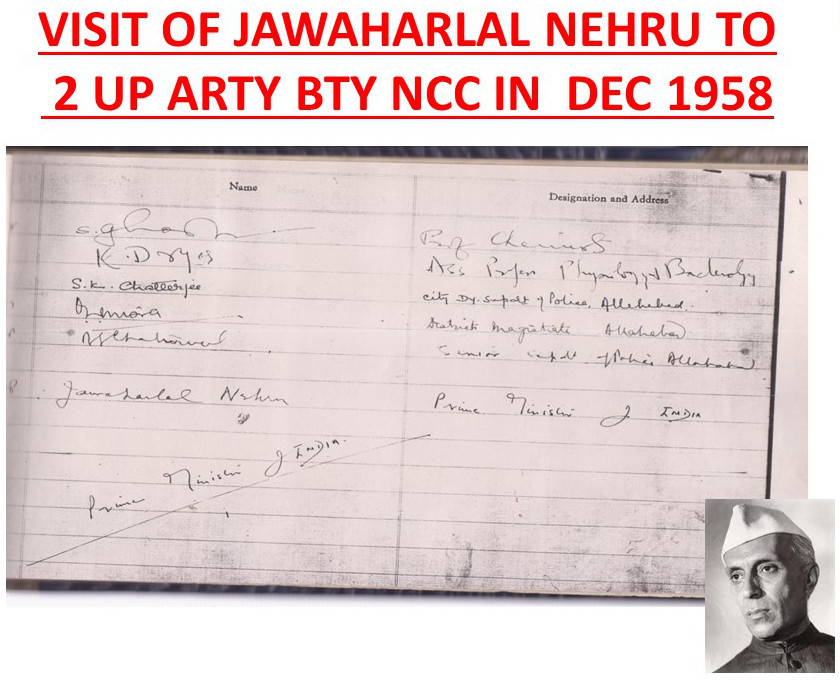 VISIT OF JAWAHARLAL NEHRU TO
2 UP ARTY BTY NCC IN DEC 1958
Name Designation and Address
S. Prof Chemist
K. D Ass Profer Physiology & Bacteriology
S.K. Chatterjee city Dy. Supdt of Police, Allahabad.
District Magistrate Allahabad
Senior Supdt of Police Allahabad
8 Jawaharlal Nehru Prime Minister of INDIA
Prime Minister of INDIA.